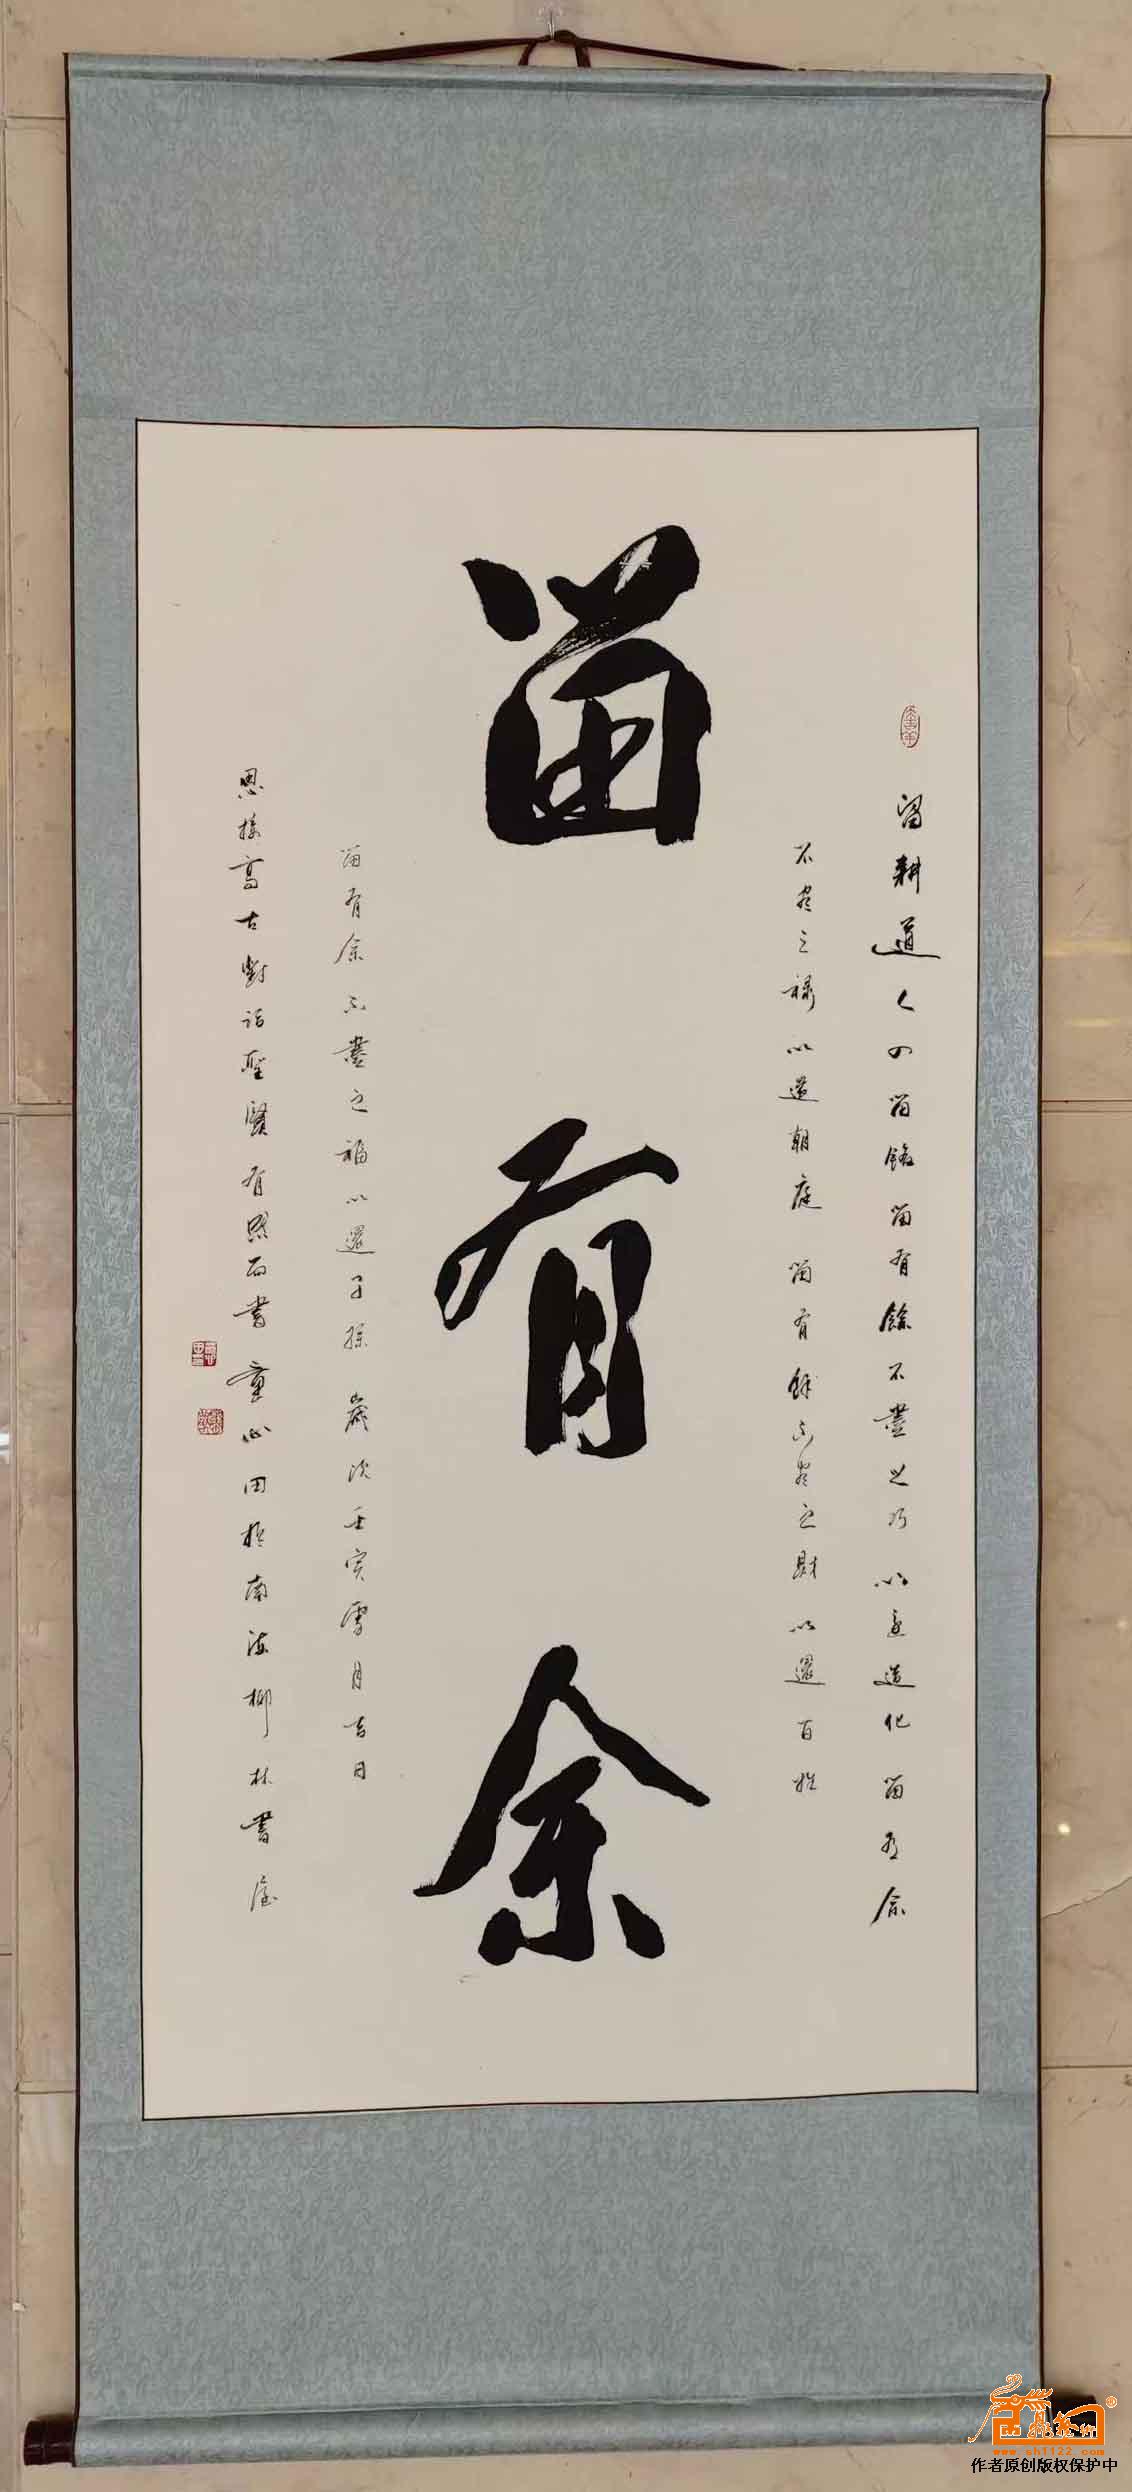 留有余
留耕道人四留銘留有餘不盡之巧以還造化留有余
不盡之禄以還朝庭留有餘不盡之財以還百姓
留有余不盡之福以還子孫歲次壬寅雪月吉日
思接高古對話聖賢有照而書童心田於南海柳林書屋
www.sh1122.com
作者原创版权保护中